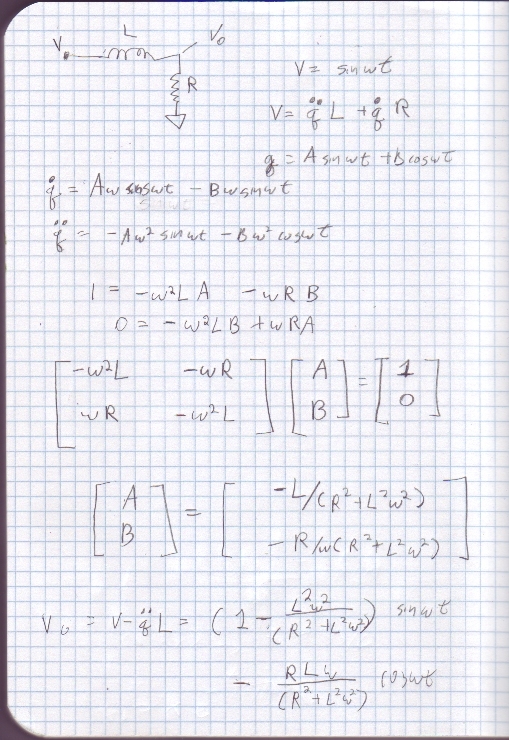 L
V
V₀
R
V = sin ωt
V = q̈ L + q̇ R
q = A sin ωt + B cos ωt
q̇ = Aω cos ωt − Bω sin ωt
q̈ = −Aω² sin ωt − Bω² cos ωt
1 = −ω²L A − ωR B
0 = −ω²L B + ωRA
[ −ω²L −ωR ] [ A ] = [ 1 ]
[ ωR −ω²L ] [ B ] [ 0 ]
[ A ] = [ −L/(R²+L²ω²) ]
[ B ] [ −R/ω(R²+L²ω²) ]
V₀ = V−q̈ L = (1 − L²ω²/(R²+L²ω²)) sin ωt
− RLω/(R²+L²ω²) cos ωt